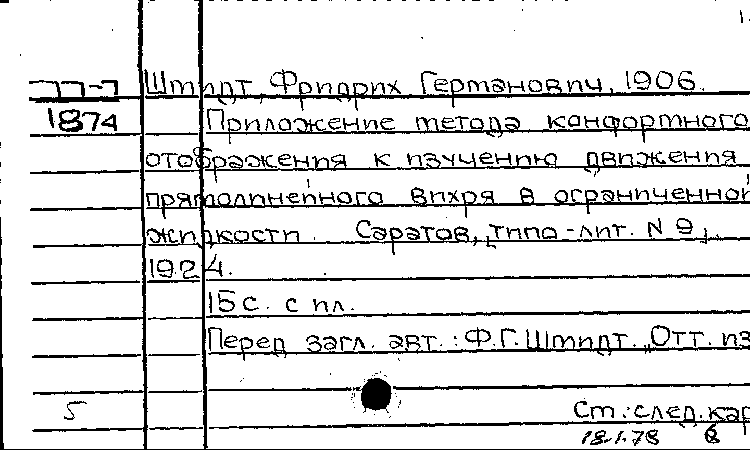 77-7 Шмидт, Фридрих Германович, 1906.
1874 Приложение метода конформного
отображения к изучению движения
прямолинейного вихря в ограниченной
жидкости. Саратов, [типо-лит. N 9],
1924.
15 с. с ил.
Перед загл. авт.: Ф.Г.Шмидт. „Отт. из
5 Cm.:след.кар
18.1.78